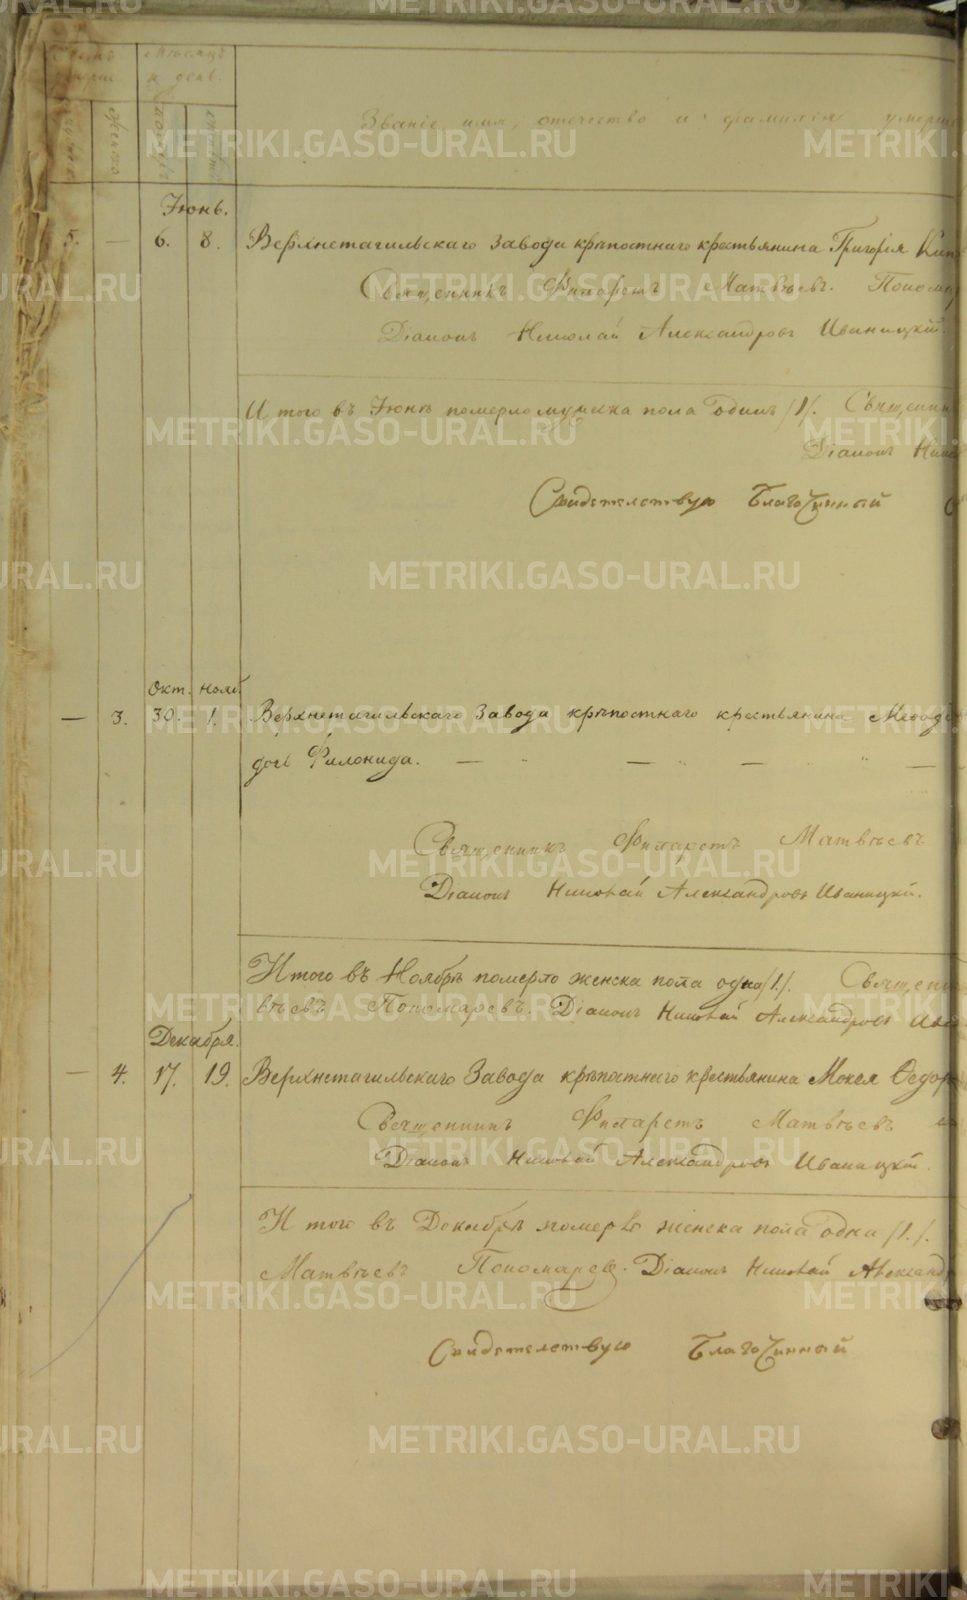 Мѣсяцъ
и день.
Званіе, имя, отечество и фамилія
Іюнь.
5. — 6. 8. Верхнетагильскаго Завода крѣпостнаго крестьянина Григорія
Священникъ Филаретъ Матвѣевъ.
Діаконъ Николай Александровъ Иваницкій.
Итого въ Іюнѣ померло мужеска пола одинъ /1/.
Діаконъ
Свидетелствую Благочинный
Окт. Нояб.
— 3. 30. 1. Верхнетагильскаго Завода крѣпостнаго крестьянина
дочь Филонида. — — — —
Священникъ Филаретъ Матвѣевъ
Діаконъ Николай Александровъ Иваницкій.
Итого въ Ноябрѣ померло женска пола одна /1/.
вѣевъ Пономаревъ. Діаконъ Николай Александровъ
Декабря.
— 4. 17. 19. Верхнетагильскаго Завода крѣпостнаго крестьянина Мокея
Священникъ Филаретъ Матвѣевъ
Діаконъ Николай Александровъ Иваницкій.
Итого въ Декабрѣ померло женска пола одна /1/.
Матвѣевъ Пономарев. Діаконъ Николай
Свидетелствую Благочинный
METRIKI.GASO-URAL.RU